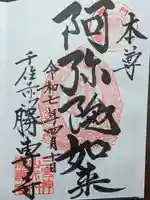 本尊
阿弥陀如来
令和七年四月十日
千住赤門
勝専寺